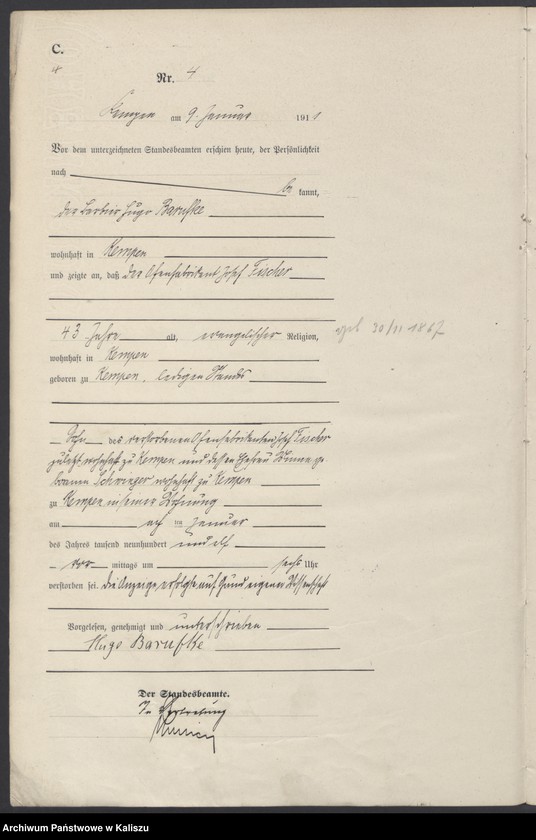 C.
4
Nr. 4
Kempen am 9. Januar 1911
Vor dem unterzeichneten Standesbeamten erschien heute, der Persönlichkeit
nach
be kannt,
der Barbier Hugo Barufke
wohnhaft in Kempen
und zeigte an, daß der Ofenfabrikant Josef Fischer
43 Jahre alt, evangelischer Religion,
geb 30/11 1867
wohnhaft in Kempen
geboren zu Kempen, ledigen Standes
Sohn des verstorbenen Ofenfabrikanten Josef Fischer
zuletzt wohnhaft zu Kempen und dessen Ehefrau ge
borenen wohnhaft zu Kempen
zu Kempen in seiner Wohnung
am acht ten Januar
des Jahres tausend neunhundert und elf
vor mittags um sechs Uhr
verstorben sei. Die Anzeige erfolgte auf Grund eigener Wissenschaft
Vorgelesen, genehmigt und unterschrieben
Hugo Barufke
Der Standesbeamte.
In Vertretung
Archiwum Państwowe w Kaliszu